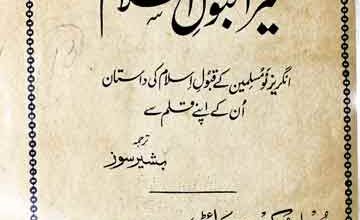 میرا قبولِ اسلام
انگریز نومسلمین کے قبولِ اسلام کی داستان
اُن کے اپنے قلم سے
ترجمہ
بشیر سوز